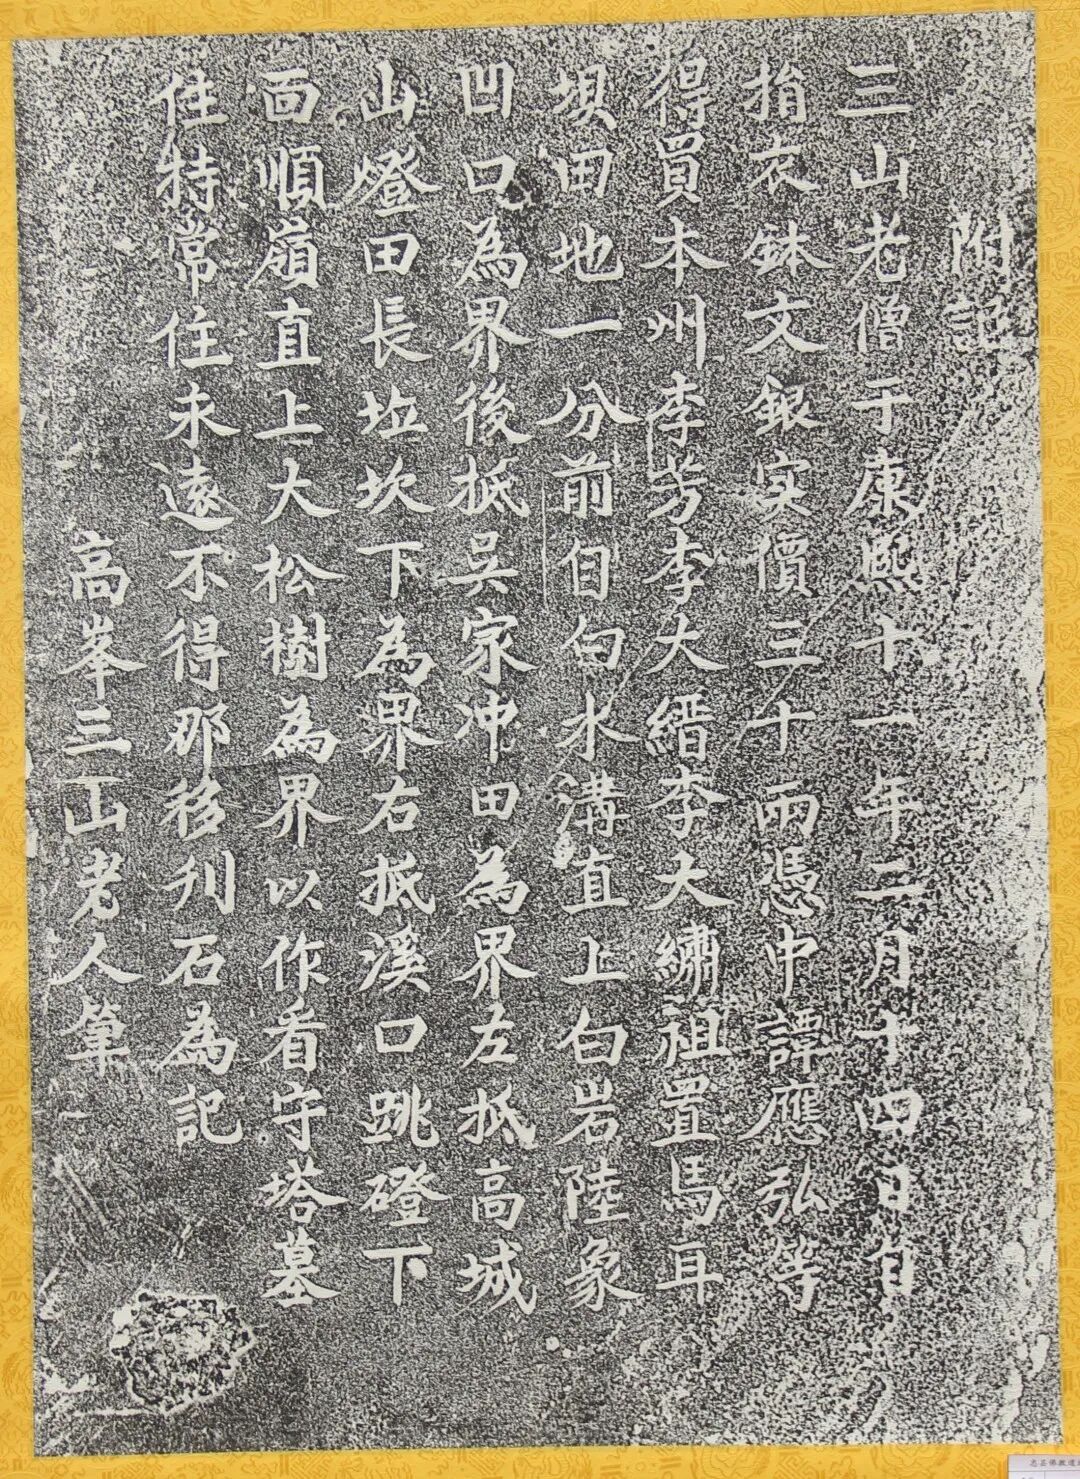 附記
三山老僧于康熙十一年二月十四日自
捐衣鉢文銀实價三十兩憑中譚應弘等
得買本州李芳李大縉李大繡祖置馬耳
坝田地一分前自白水溝直上白岩陸象
凹口為界後抵吳家冲田為界左抵高城
山燈田長垃坎下為界右抵溪口跳磴下
面順嶺直上大松樹為界以作看守塔墓
住特常住永遠不得那移刊石為記
高峯三山老人筆
忠县佛教遗